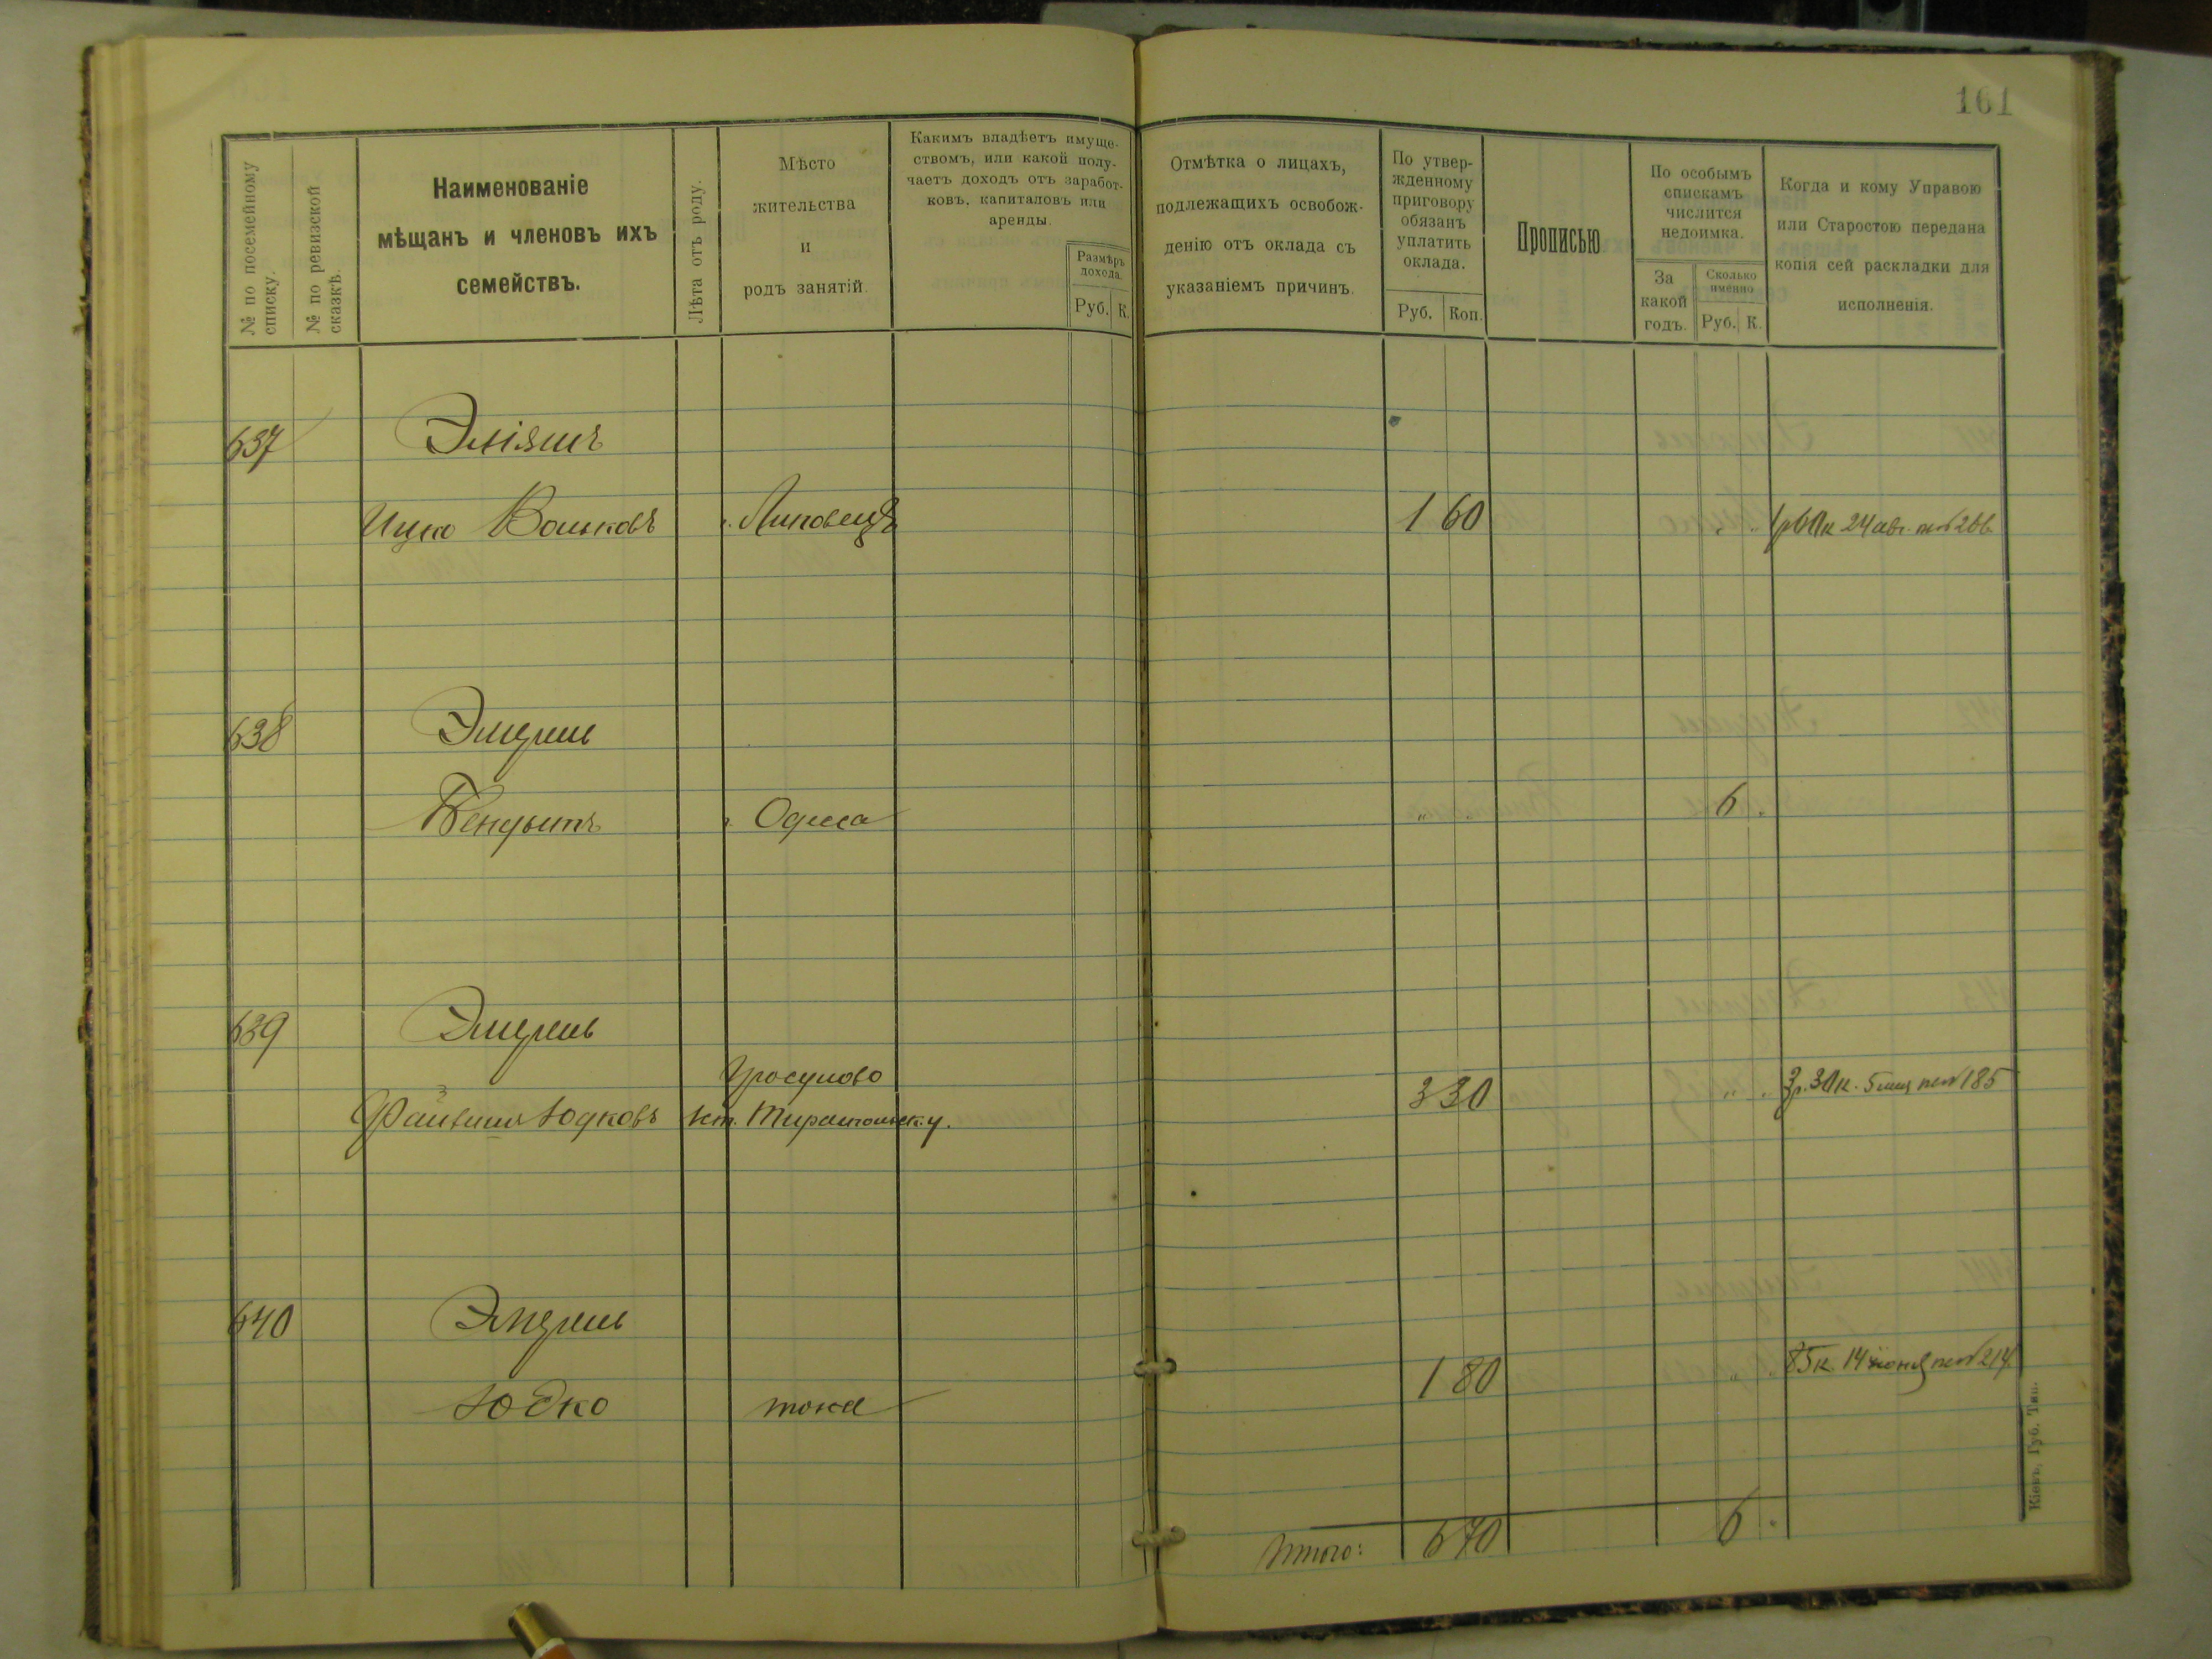 161
№ по посемейному
списку.
№ по ревизской
сказкѣ.
Наименованіе
мѣщанъ и членовъ ихъ
семействъ.
Лѣта отъ роду.
Мѣсто
жительства
и
родъ занятій.
Какимъ владѣетъ имуще-
ствомъ, или какой полу-
чаетъ доходъ отъ заработ-
ковъ, капиталовъ или
аренды.
Размѣръ
дохода.
Руб. К.
Отмѣтка о лицахъ,
подлежащихъ освобож-
денію отъ оклада съ
указаніемъ причинъ.
По утвер-
жденному
приговору
обязанъ
уплатить
оклада.
Руб. Коп.
Прописью
По особымъ
спискамъ
числится
недоимка.
За
какой
годъ.
Сколько
именно
Руб. К.
Когда и кому Управою
или Старостою передана
копія сей раскладки для
исполненія.
637 Эліяшъ
Ицко Вольковъ г. Липовецъ 1 60 " " 1р60к 24 авг.
638
Бендытъ г. Одесса " " 6 "
639
Гросулово
Юдковъ 3 30 " " 3р.30к. 5 185
640
Юдко тоже 1 80 " 85к. 14 іюня 214
Итого: 6 70 6 "
Кіевъ, Губ. Тип.